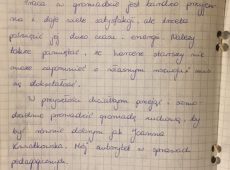 Praca w gromadzie jest bardzo przyjem-
na i daje wiele satysfakcji, ale trzeba
poświęcić jej dużo czasu i energii. Należy
także pamiętać, że harcerz starszy nie
może zapomnieć o własnym rozwoju i musi
się dokształcać.
W przyszłości chciałbym przejąć i samo-
dzielnie prowadzić gromadę zuchową, by
być równie dobrym jak Joanna
Kwiatkowska. Mój autorytet w sprawach
pedagogicznych.